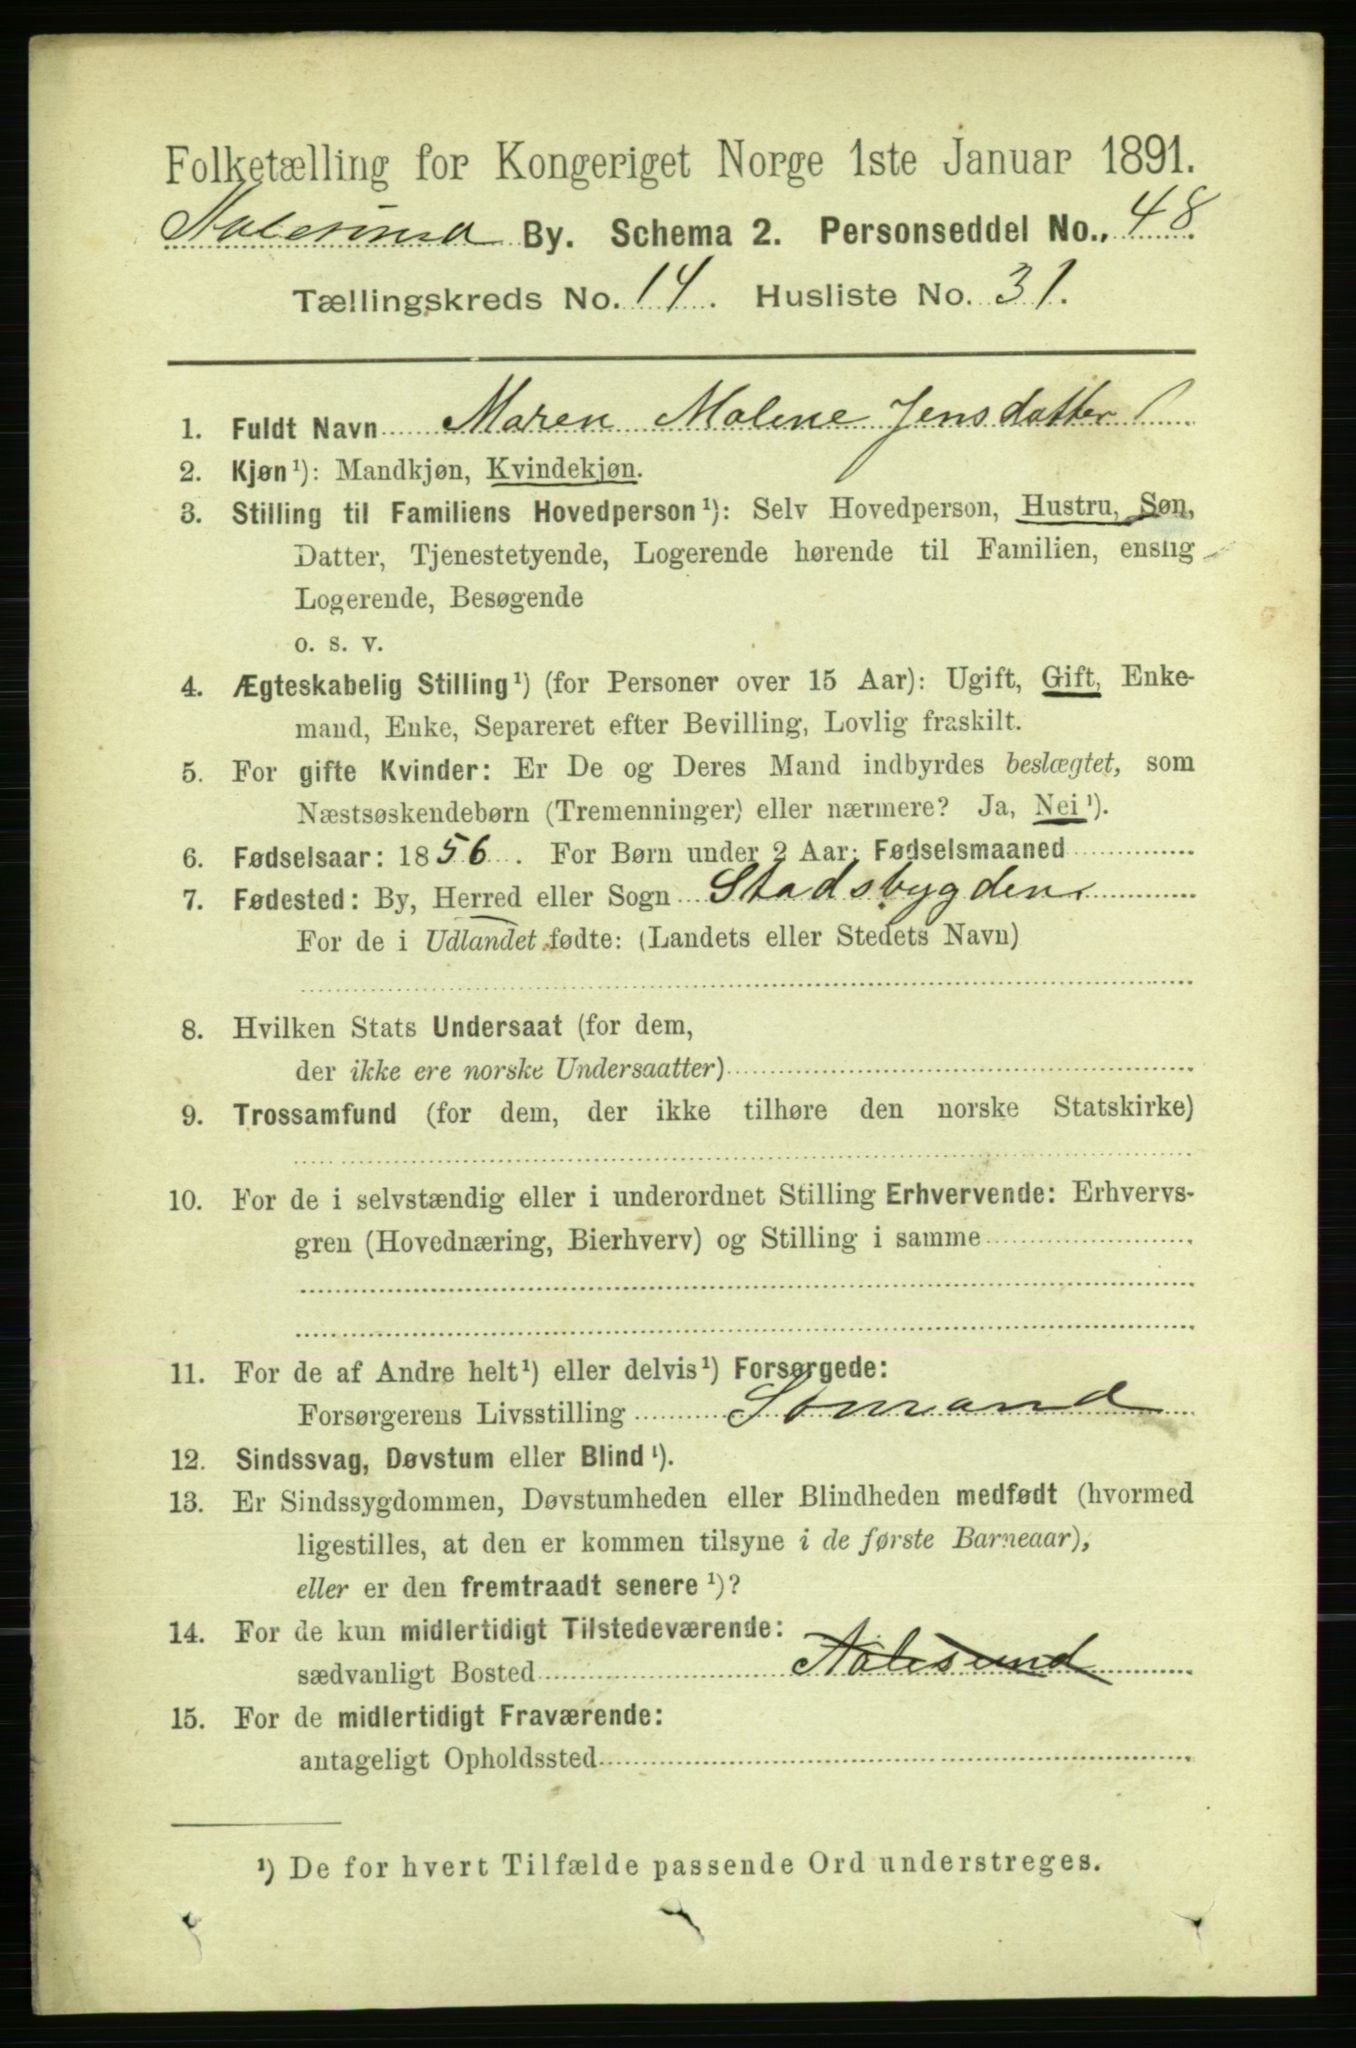 Folketælling for Kongeriget Norge 1ste Januar 1891.
Aalesund By. Schema 2. Personseddel No. 48
Tællingskreds No. 14. Husliste No. 31.
1. Fuldt Navn Maren Malene Jensdatter
2. Kjøn¹): Mandkjøn, Kvindekjøn.
3. Stilling til Familiens Hovedperson¹): Selv Hovedperson, Hustru, Søn,
Datter, Tjenestetyende, Logerende hørende til Familien, enslig
Logerende, Besøgende
o. s. v.
4. Ægteskabelig Stilling¹) (for Personer over 15 Aar): Ugift, Gift, Enke-
mand, Enke, Separeret efter Bevilling, Lovlig fraskilt.
5. For gifte Kvinder: Er De og Deres Mand indbyrdes beslægtet, som
Næstsøskendebørn (Tremenninger) eller nærmere? Ja, Nei¹).
6. Fødselsaar: 1856. For Børn under 2 Aar: Fødselsmaaned
7. Fødested: By, Herred eller Sogn Stadsbygden
For de i Udlandet fødte: (Landets eller Stedets Navn)
8. Hvilken Stats Undersaat (for dem,
der ikke ere norske Undersaatter)
9. Trossamfund (for dem, der ikke tilhøre den norske Statskirke)
10. For de i selvstændig eller i underordnet Stilling Erhvervende: Erhvervs-
gren (Hovednæring, Bierhverv) og Stilling i samme
11. For de af Andre helt¹) eller delvis¹) Forsørgede:
Forsørgerens Livsstilling Sömand
12. Sindssvag, Døvstum eller Blind¹).
13. Er Sindssygdommen, Døvstumheden eller Blindheden medfødt (hvormed
ligestilles, at den er kommen tilsyne i de første Barneaar),
eller er den fremtraadt senere¹)?
14. For de kun midlertidigt Tilstedeværende:
sædvanligt Bosted Aalesund
15. For de midlertidigt Fraværende:
antageligt Opholdssted
¹) De for hvert Tilfælde passende Ord understreges.